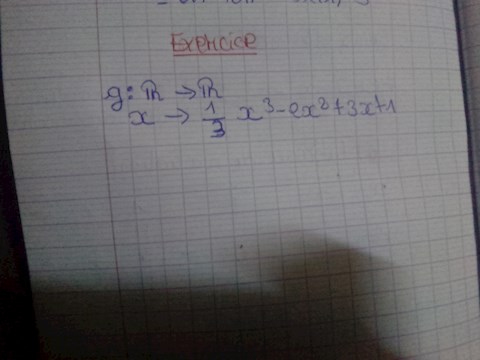 Exercice
g: ℝ → ℝ
x → 1/3 x³-2x²+3x+1